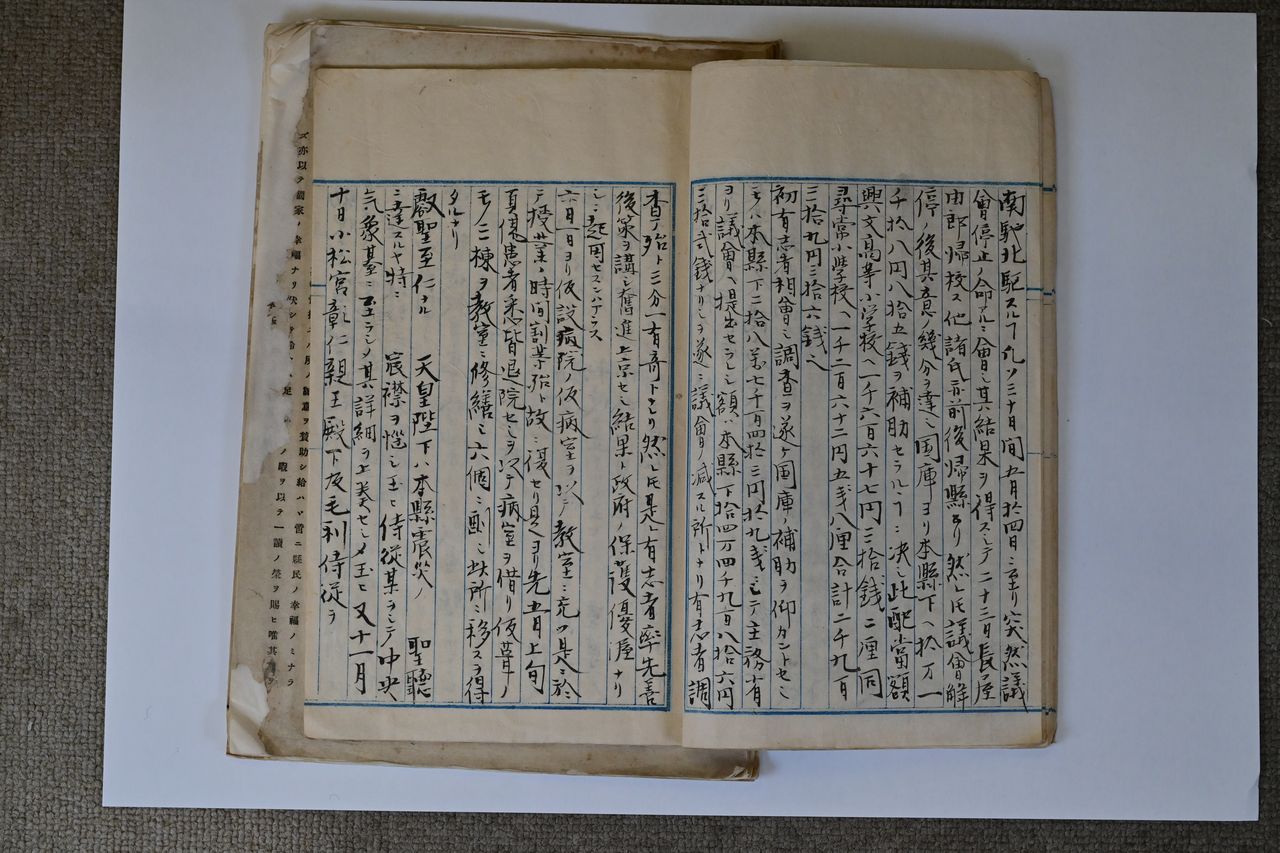 南馳北駆スルヿ凡ソ二十日間五月拾四日ニ至リ突然議
會停止ノ命アルニ會シ其結果ヲ得スシテ二十三日長屋
由郎帰校ス他諸氏亦前後帰縣セリ然レ𪜈議會解
停ノ後其意ノ幾分ヲ達シ国庫ヨリ本縣下ヘ拾万一
千拾八円八拾五銭ヲ補助セラルヽニ决シ此配當額
興文高等小学校ヘ一千六百六十七円三拾銭二厘同
尋常小学校ヘ一千二百六十二円五戋八厘合計二千九百
三拾九円三拾六銭ヘ
初有志者相會シ調査ヲ遂ケ国庫ノ補助ヲ仰カントセシ
モノハ本縣下二拾八万七千百四拾三円拾九戋ニシテ主務省
ヨリ議會ヘ提出セラレシ額ハ本縣下拾四万四千九百八拾六円
三拾弐銭ナリシヲ遂ニ議會ノ減スル所トナリ有志者調
査ノ殆ト三分一有奇トナレリ然レ𪜈是レ有志者率先善
後策ヲ講シ奮進上京セシ結果ト政府ノ保護優渥ナリ
シニ起因セスンハアラス
六月一日ヨリ仮設病院ノ仮病室ヲ以テ教室ニ充ツ是ニ於
テ授業ノ時間割等殆ト故ニ復セリ是ヨリ先五月上旬
負傷患者悉皆退院セシヲ以テ病室ヲ借リ仮葺ノ
モノ二棟ヲ教室ニ修繕シ六個ニ劃シ此所ニ移スヲ得
タルナリ
叡聖至仁ナル 天皇陛下ハ本縣震災ノ 聖聽
ニ達スルヤ特ニ 宸襟ヲ惱シ玉ヒ侍從某ヲシテ中央
気象臺ニ至ラシメ其詳細ヲ上奏セシメ玉ヒ又十一月
十日小松宮彰仁親王殿下及毛利侍従ヲ
ノ賛助シ給ハヾ啻ニ縣民ノ幸福ノミナラ
ズ亦以テ國家ノ幸福ナリ
ノ暇ヲ以テ一讀ノ榮ヲ賜ヒ唯其